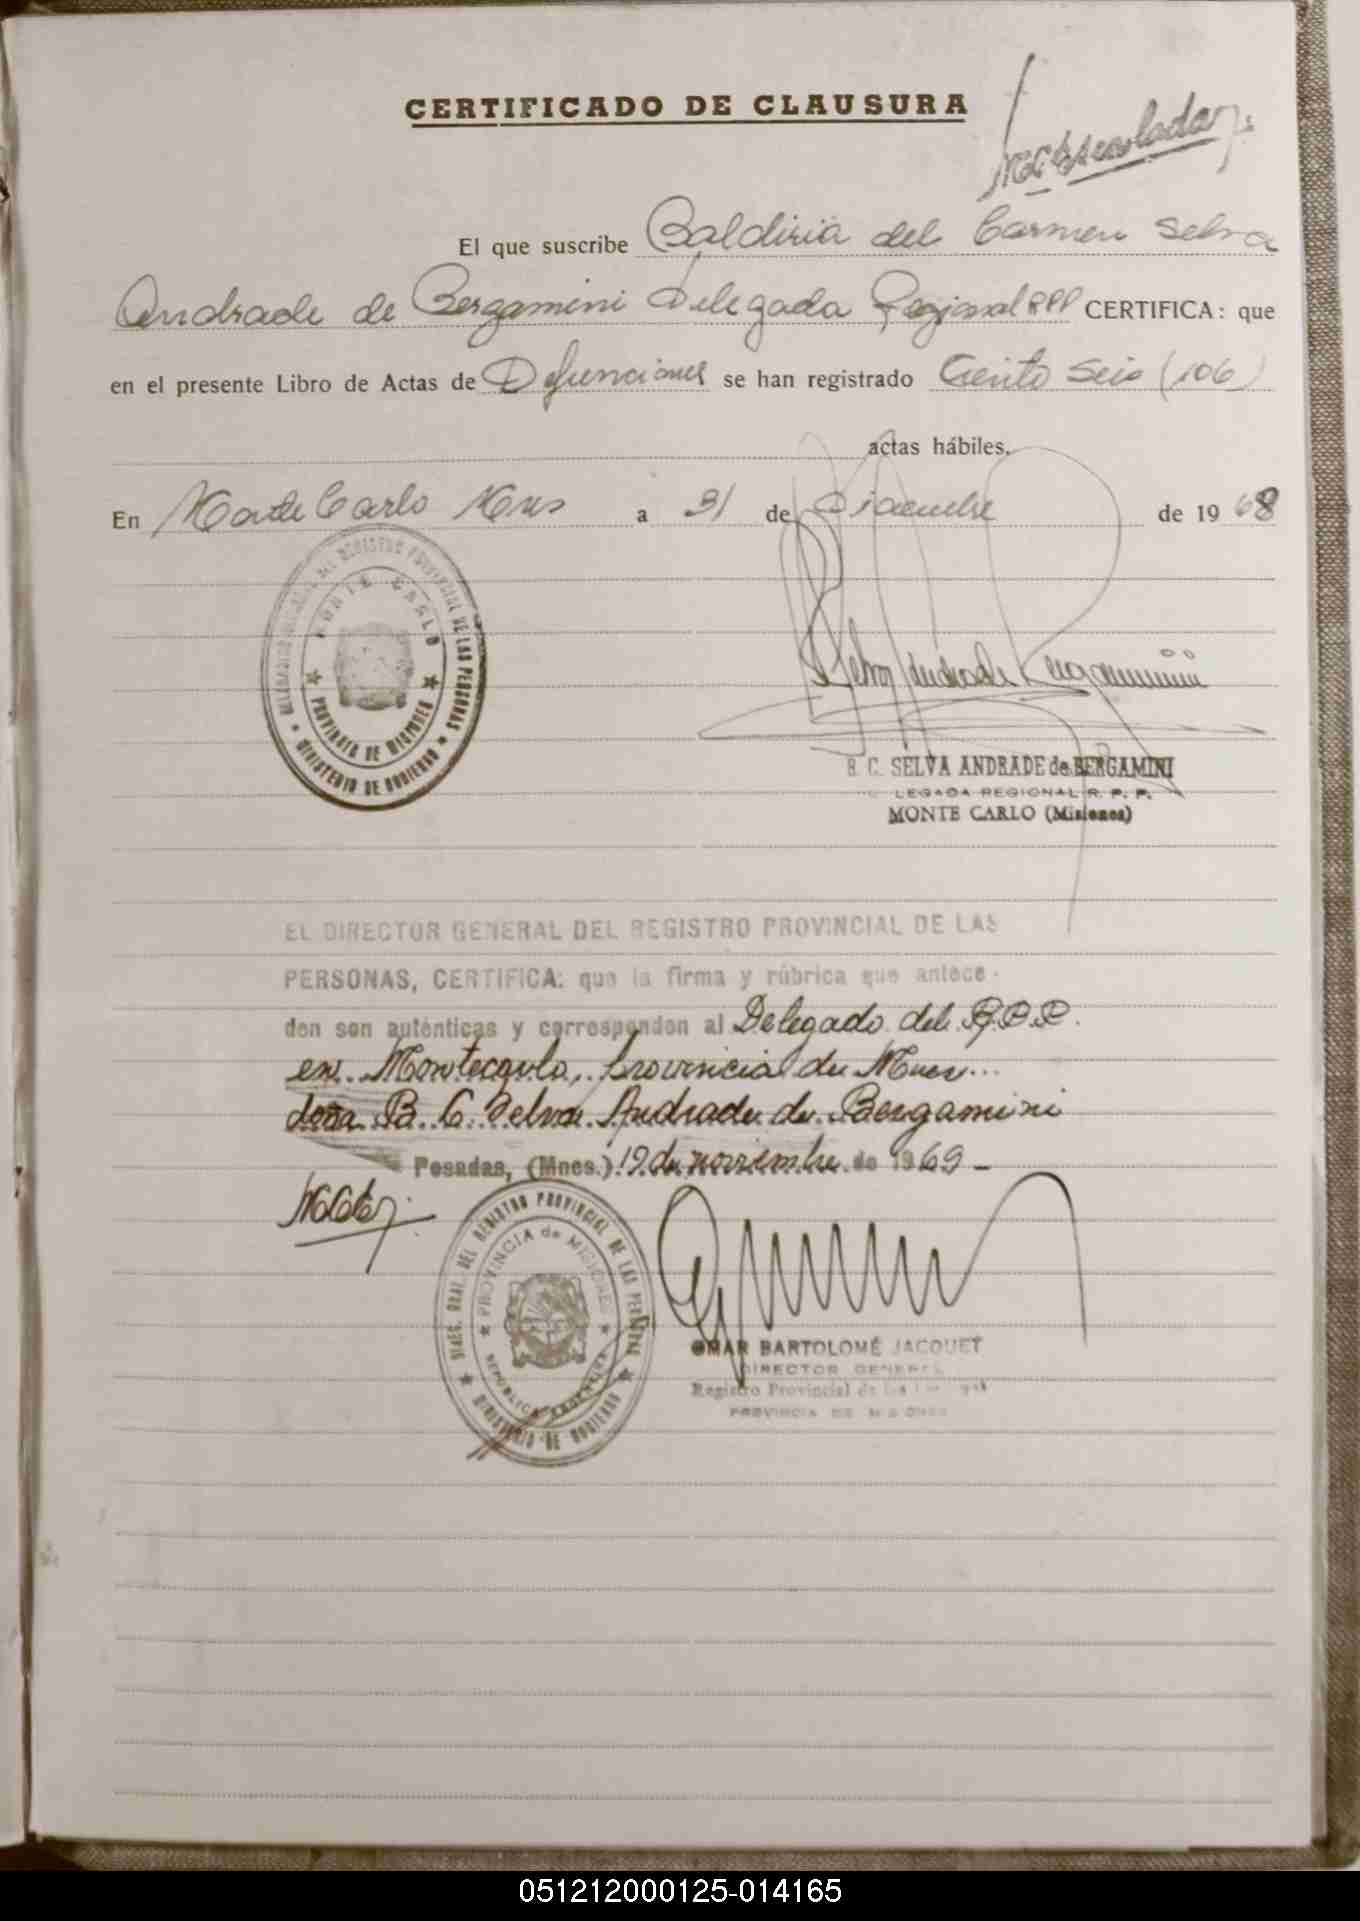 CERTIFICADO DE CLAUSURA
El que suscribe Baldiria del Carmen Selva
Andrade de Bergamini Delegada Regional RPP CERTIFICA: que
en el presente Libro de Actas de Defunciones se han registrado Ciento Seis (106)
actas hábiles.
En Monte Carlo Mnes a 31 de Diciembre de 1968
MONTE CARLO
PROVINCIA DE MISIONES
MINISTERIO DE GOBIERNO
B. C. SELVA ANDRADE de BERGAMINI
LEGADA REGIONAL R. P. P.
MONTE CARLO (Misiones)
EL DIRECTOR GENERAL DEL REGISTRO PROVINCIAL DE LAS
PERSONAS, CERTIFICA: que la firma y rúbrica que antece-
den son auténticas y corresponden al Delegado del R.P.P.
en Montecarlo, Provincia de Mnes...
doña B. C. Selva Andrade de Bergamini
Posadas, (Mnes.) 19 de noviembre de 1969 -
DIREC. GRAL. DEL REGISTRO PROVINCIAL DE LAS PERSONAS
PROVINCIA de MISIONES
REPUBLICA ARGENTINA
MINISTERIO DE GOBIERNO
OMAR BARTOLOMÉ JACQUET
DIRECTOR GENERAL
Registro Provincial de las
PROVINCIA DE MISIONES
051212000125-014165